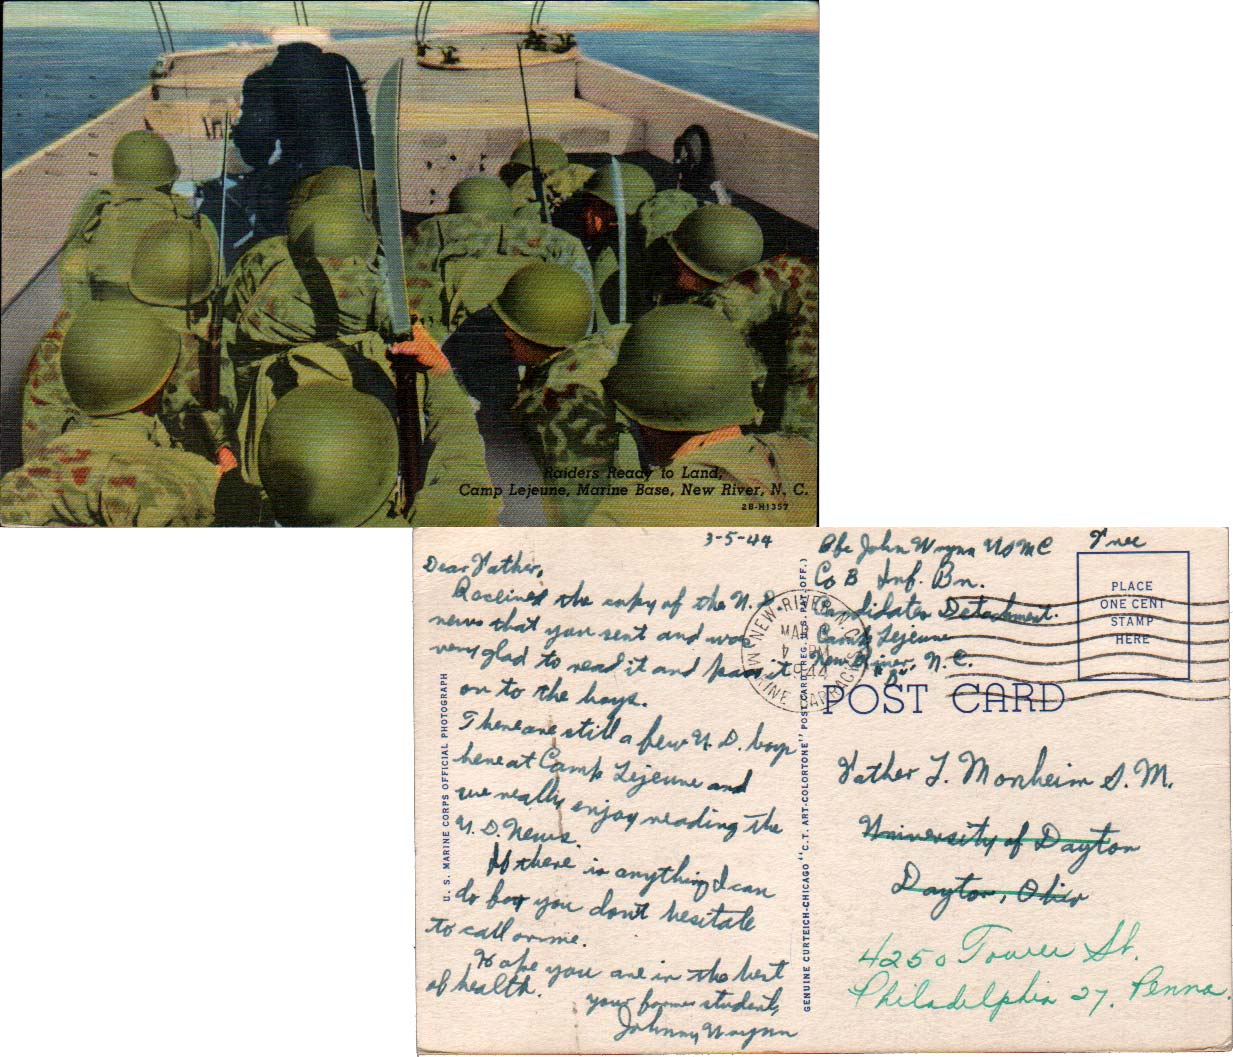 Raiders Ready to Land,
Camp Lejeune, Marine Base, New River, N. C.
2B-H1357
3-5-44
Dear Father,
Received the copy of the U. D.
news that you sent and was
very glad to read it and pass it
on to the boys.
There are still a few U. D. boys
here at Camp Lejeune and
we really enjoy reading the
U. D. News.
If there is anything I can
do for you dont hesitate
to call on me.
Hope you are in the best
of health.
your former student,
Johnny Wrynn
U. S. MARINE CORPS OFFICIAL PHOTOGRAPH
GENUINE CURTEICH-CHICAGO "C.T. ART-COLORTONE" POST CARD (REG. U.S. PAT. OFF.)
Pfc John Wrynn USMC
Co B Inf. Bn.
Candidates Detachment.
Camp Lejeune
New River, N. C.
"D"
Free
PLACE
ONE CENT
STAMP
HERE
NEW RIVER N. C.
MAR
PM
1944
MARINE BARRACKS
POST CARD
Father L. Monheim S. M.
University of Dayton
Dayton, Ohio
4250 Tower St.
Philadelphia 27, Penna.